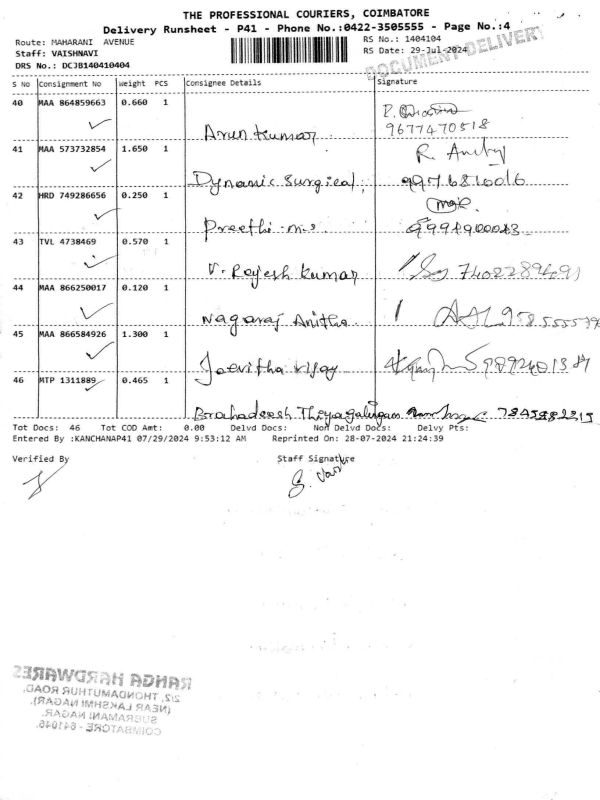 THE PROFESSIONAL COURIERS, COIMBATORE
Delivery Runsheet - P41 - Phone No.:0422-3505555 - Page No.:4
Route: MAHARANI AVENUE
RS No.: 1404104
Staff: VAISHNAVI
RS Date: 29-Jul-2024
DRS No.: DCJB140410404
DOCUMENT DELIVERY
S No Consignment No Weight PCS Consignee Details Signature
40 MAA 864859663 0.660 1
Arun kumar 9677470518
41 MAA 573732854 1.650 1
Dynamic Surgical 9976810016
42 HRD 749286656 0.250 1
Preethi m.s
43 TVL 4738469 0.570 1
V. Rajesh kumar 7402289491
44 MAA 866250017 0.120 1
Nagaraj Anitha
45 MAA 866584926 1.300 1
Jeevitha vijay
46 MTP 1311889 0.465 1
Brahadeesh Thiyagalingam
Tot Docs: 46 Tot COD Amt: 0.00 Delvd Docs: Non Delvd Docs: Delvy Pts:
Entered By :KANCHANAP41 07/29/2024 9:53:12 AM Reprinted On: 28-07-2024 21:24:39
Verified By Staff Signature
RANGA HARDWARES
2/2, THONDAMUTHUR ROAD,
(NEAR LAKSHMI NAGAR),
SUBRAMANI NAGAR,
COIMBATORE - 641046.